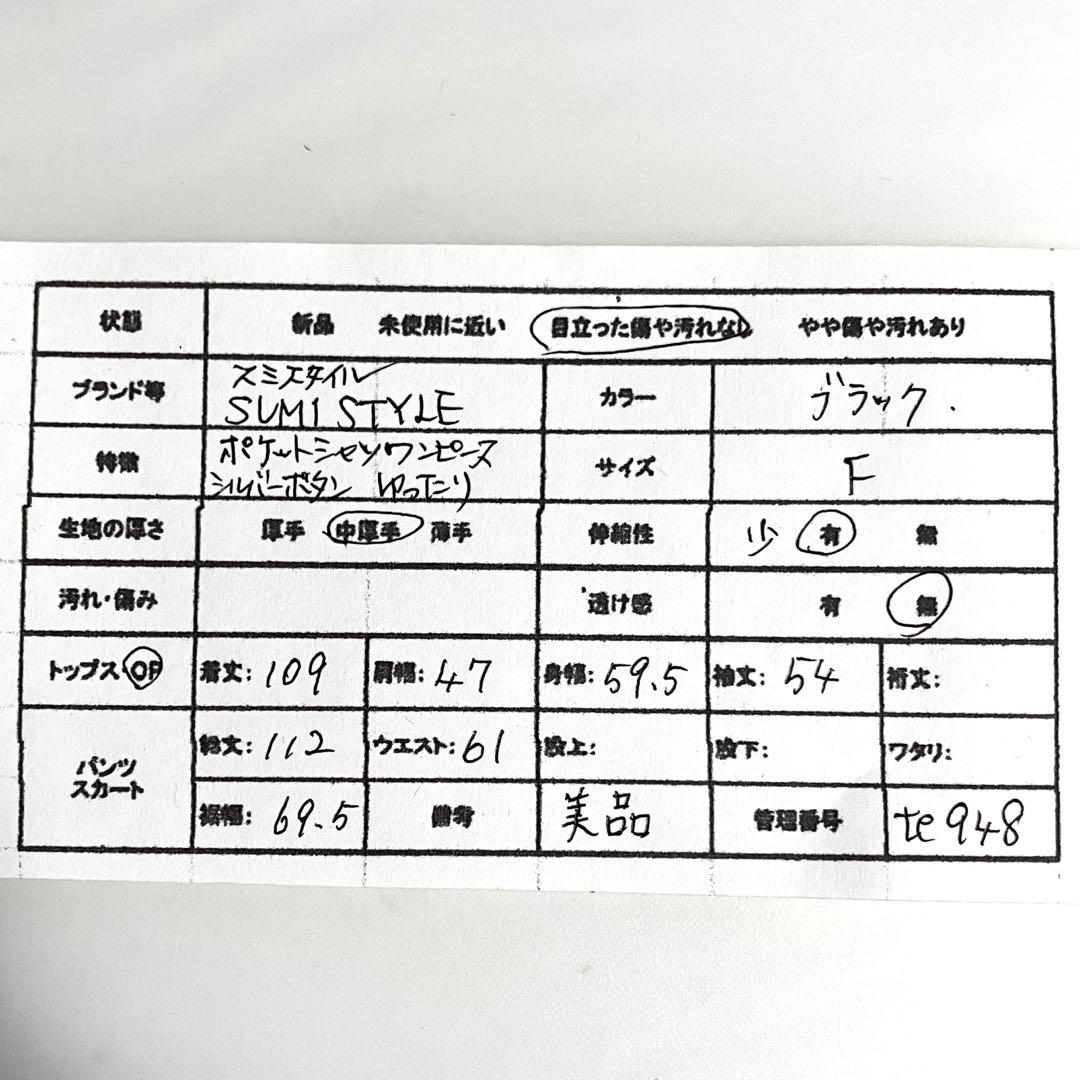 状態 新品 未使用に近い 目立った傷や汚れなし やや傷や汚れあり
ブランド等 スミスタイル カラー ブラック.
SUMI STYLE
特徴 ポケットシャツワンピース サイズ F
シルバーボタン ゆったり
生地の厚さ 厚手 中厚手 薄手 伸縮性 少 有 無
汚れ・傷み 透け感 有 無
トップス OP 着丈: 109 肩幅: 47 身幅: 59.5 袖丈: 54 裄丈:
パンツ スカート 総丈: 112 ウエスト: 61 股上: 股下: ワタリ:
裾幅: 69.5 備考 美品 管理番号 te948